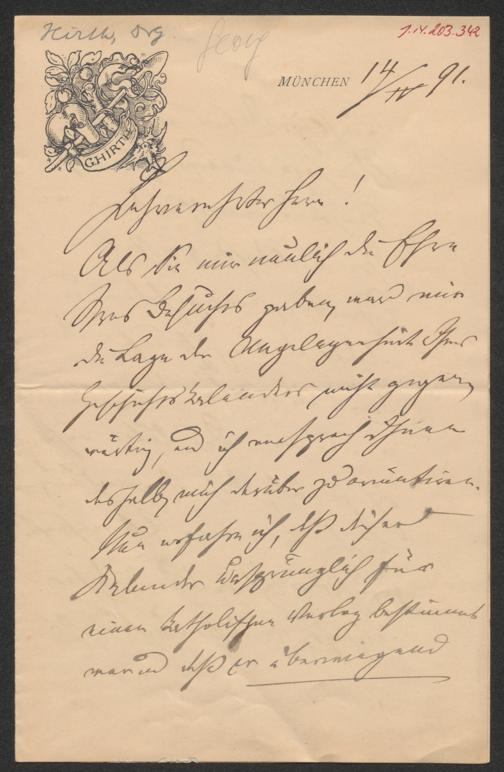 Hirth, Org
Georg
1.N.203.342
G. HIRTH
MÜNCHEN 14/IV 91.
Sehr verehrter Herr!
Als Sie mir neulich die Ehre
Ihres Besuchs gaben, war mir
die Lage der Angelegenheit Ihres
Geschichtskalenders nicht gegen-
wärtig, und ich versprach Ihnen
deshalb, mich darüber zu orientiren.
Nun erfahre ich, daß dieser
Kalender ursprünglich für
einen katholischen Verlag bestimmt
war und daß er überwiegend